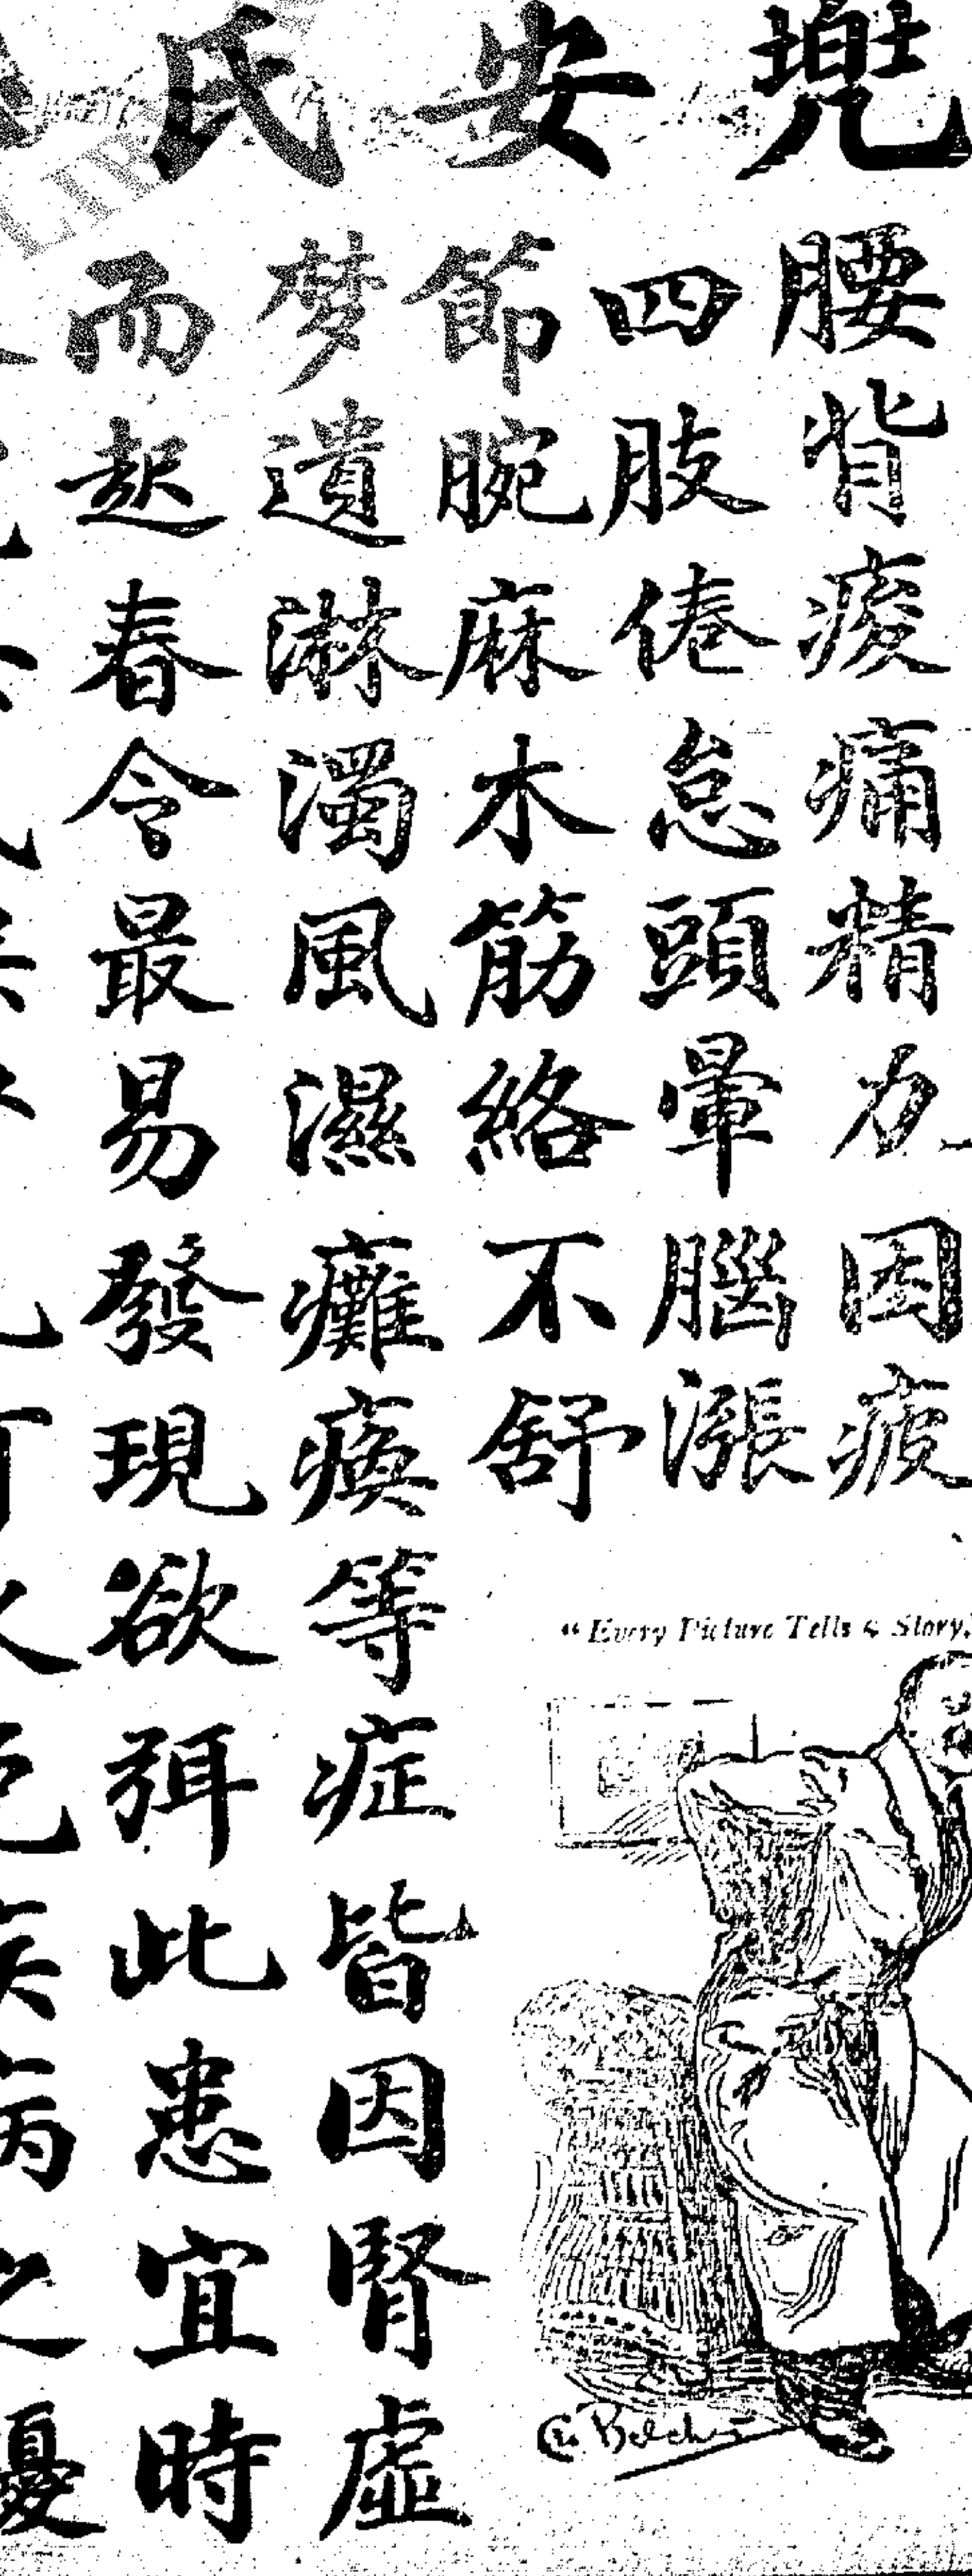 兜安氏
腰背痠痛精力困疲
四肢倦怠頭暈腦漲
節腕麻木筋絡不舒
梦遺淋濁風濕癱瘓等症皆因腎虛
而起春令最易發現欲弭此患宜時
"Every Picture Tells a Story.